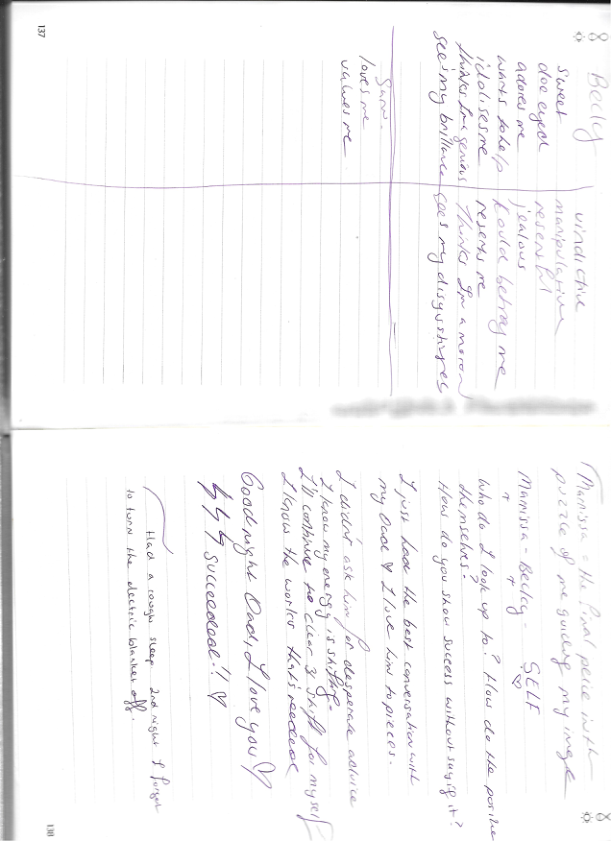 137
Becky
sweet
doe eyed
adores me
wants to help
idolises me
thinks I'm a genius
sees my brilliance
vindictive
manipulative
resentful
jealous
could betray me
resents me
thinks I'm a moron
sees my disgustingness
Sam.
loves me
values me
138
Marrissa = the final peice in the
puzzle of me guiding my image
Marrissa - Becky - SELF
Who do I look up to? How do the
themselves?
How do you show success without saying it?
I just had the best conversation with
my Dad & I love him to pieces.
I didn't ask him for desperate advice
I know my energy is shifting.
I'll continue to clear & shift for myself
I know the works that's needed
Good night Dad, I love you ♡
succeeded!! ♡
Had a rough sleep 2nd night I forgot
to turn the electric blanket off.